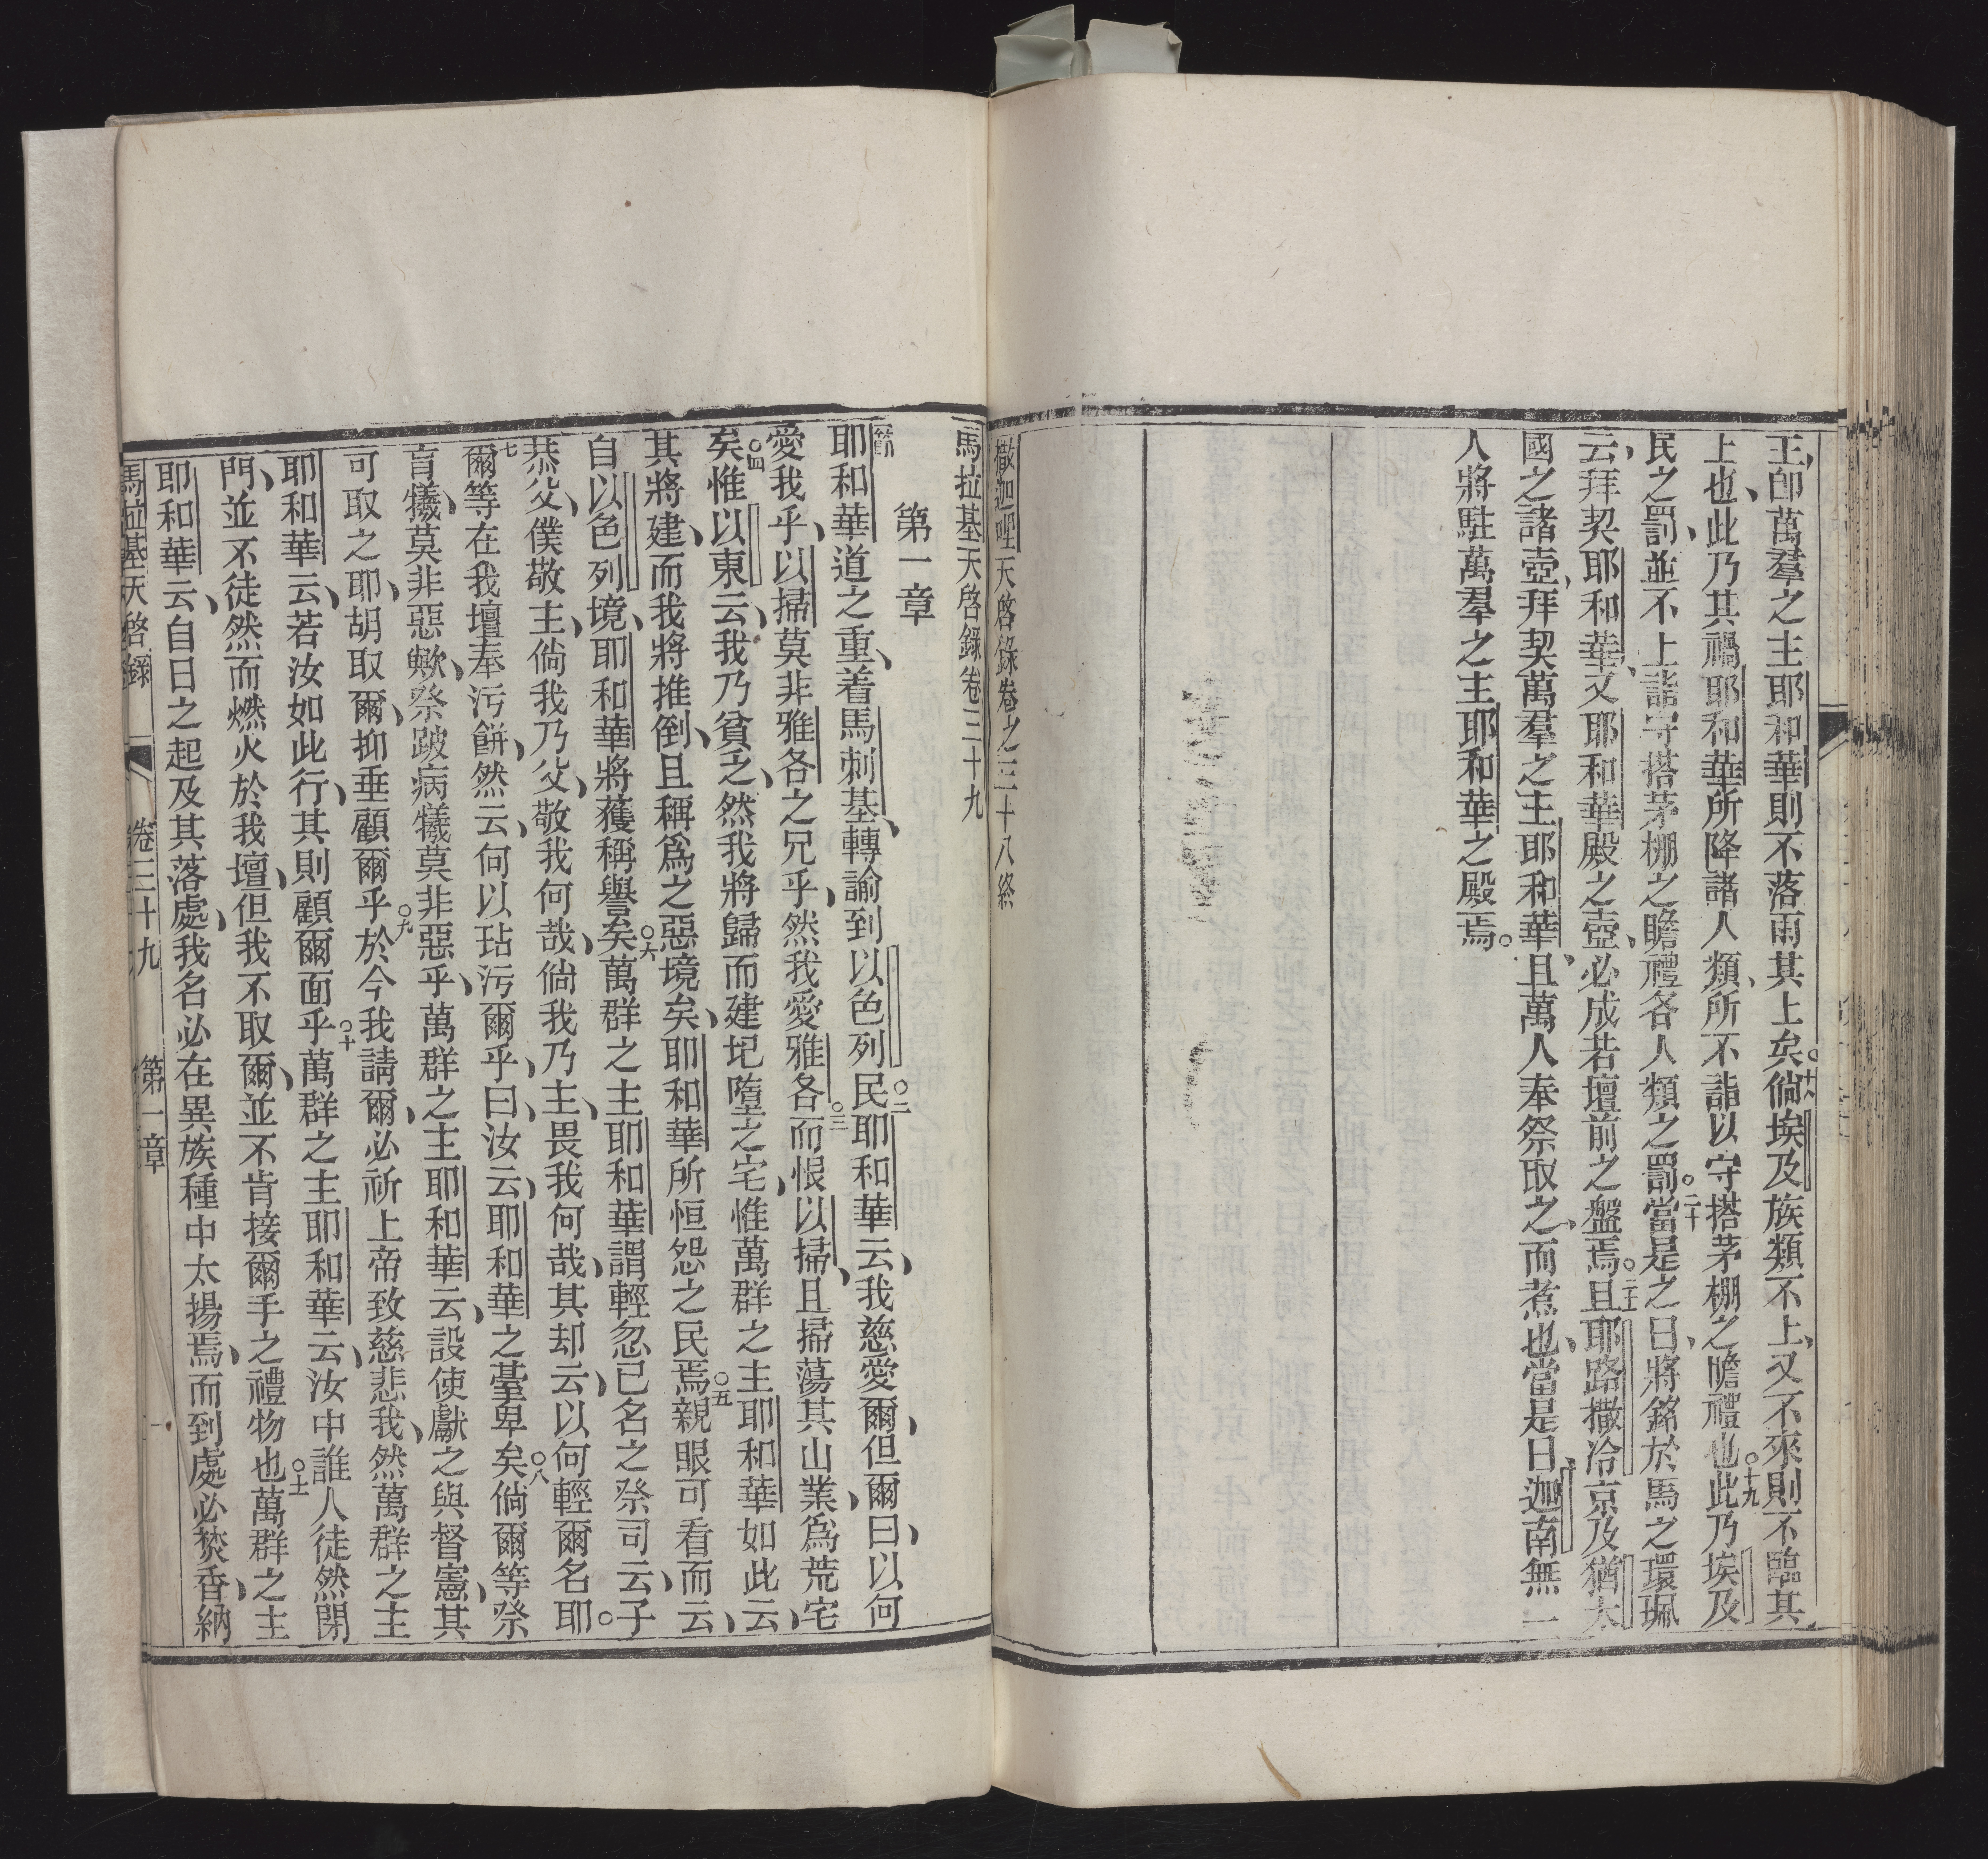 王、卽萬羣之主耶和華則不落雨其上矣。十八倘埃及族類不上、又不來則不臨其
上也、此乃其禍耶和華所降諸人類、所不詣以守搭茅棚之瞻禮也。十九此乃埃及
民之罰、並不上詣守搭茅棚之瞻禮各人類之罰。二十當是之日、將銘於馬之環珮
云、拜契耶和華、又耶和華殿之壺、必成若壇前之盤焉。二十一且耶路撒冾京及猶太
國之諸壺、拜契萬羣之主耶和華、且萬人奉祭取之、而煮也、當是日、迦南無一
人將駐萬羣之主耶和華之殿焉。
撒迦哩天啓錄卷之三十八終
馬拉基天啓錄卷三十九
第一章
耶和華道之重、着馬刺基、轉諭到以色列民。二耶和華云、我慈愛爾、但爾曰、以何
愛我乎、以掃莫非雅各之兄乎、然我愛雅各。三而恨以掃、且掃蕩其山業、爲荒宅
矣。四惟以東云、我乃貧乏、然我將歸而建圮墮之宅、惟萬群之主耶和華如此云、
其將建、而我將推倒、且稱爲之惡境矣、耶和華所恒怨之民焉。五親眼可看而云、
自以色列境、耶和華將獲稱譽矣。六萬群之主耶和華謂輕忽已名之祭司云、子
恭父、僕敬主、倘我乃父、敬我何哉、倘我乃主、畏我何哉、其却云、以何輕爾名耶。
七爾等在我壇奉污餅、然云、何以玷污爾乎、曰、汝云、耶和華之臺卑矣。八倘爾等祭
盲犧、莫非惡歟、祭跛病犧莫非惡乎、萬群之主耶和華云、設使獻之與督憲、其
可取之耶、胡取爾、抑垂顧爾乎。九於今我請爾、必祈上帝致慈悲我、然萬群之主
耶和華云、若汝如此行、其則顧爾面乎。十萬群之主耶和華云、汝中誰人徒然閉
門、並不徒然而燃火於我壇、但我不取爾、並不肯接爾手之禮物也。十一萬群之主
耶和華云、自日之起及其落處、我名必在異族種中太揚焉、而到處必焚香、納
馬拉基天啓錄 卷三十九 第一章 一